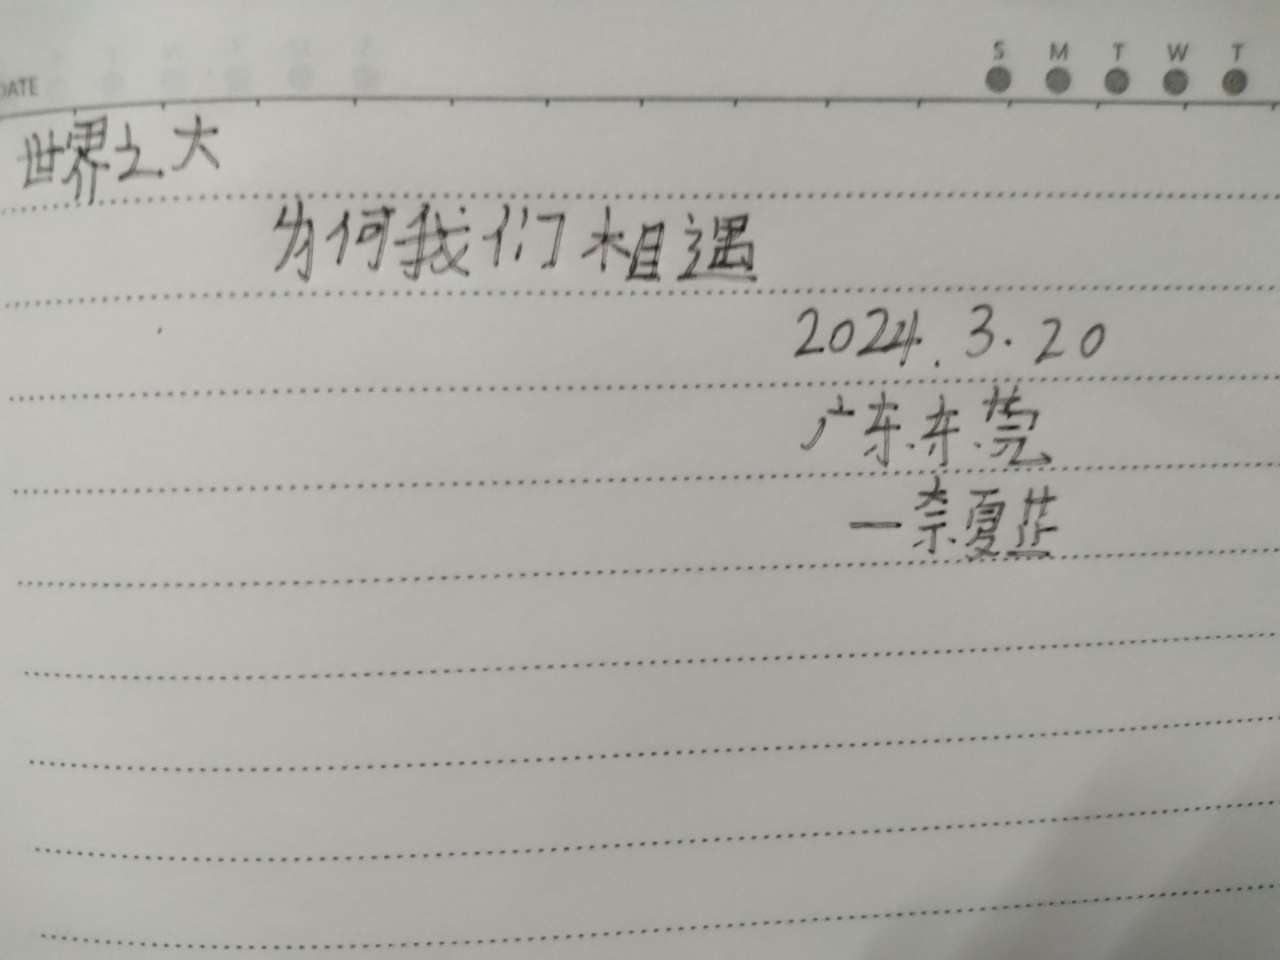 DATE
S M T W T
世界之大
为何我们相遇
2024.3.20
广东东莞
一奈夏芷